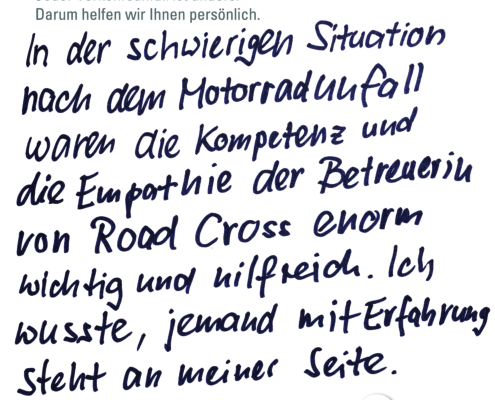 Darum helfen wir Ihnen persönlich.
In der schwierigen Situation
nach dem Motorradunfall
waren die Kompetenz und
die Empathie der Betreuerin
von Road Cross enorm
wichtig und hilfreich. Ich
wusste, jemand mit Erfahrung
steht an meiner Seite.